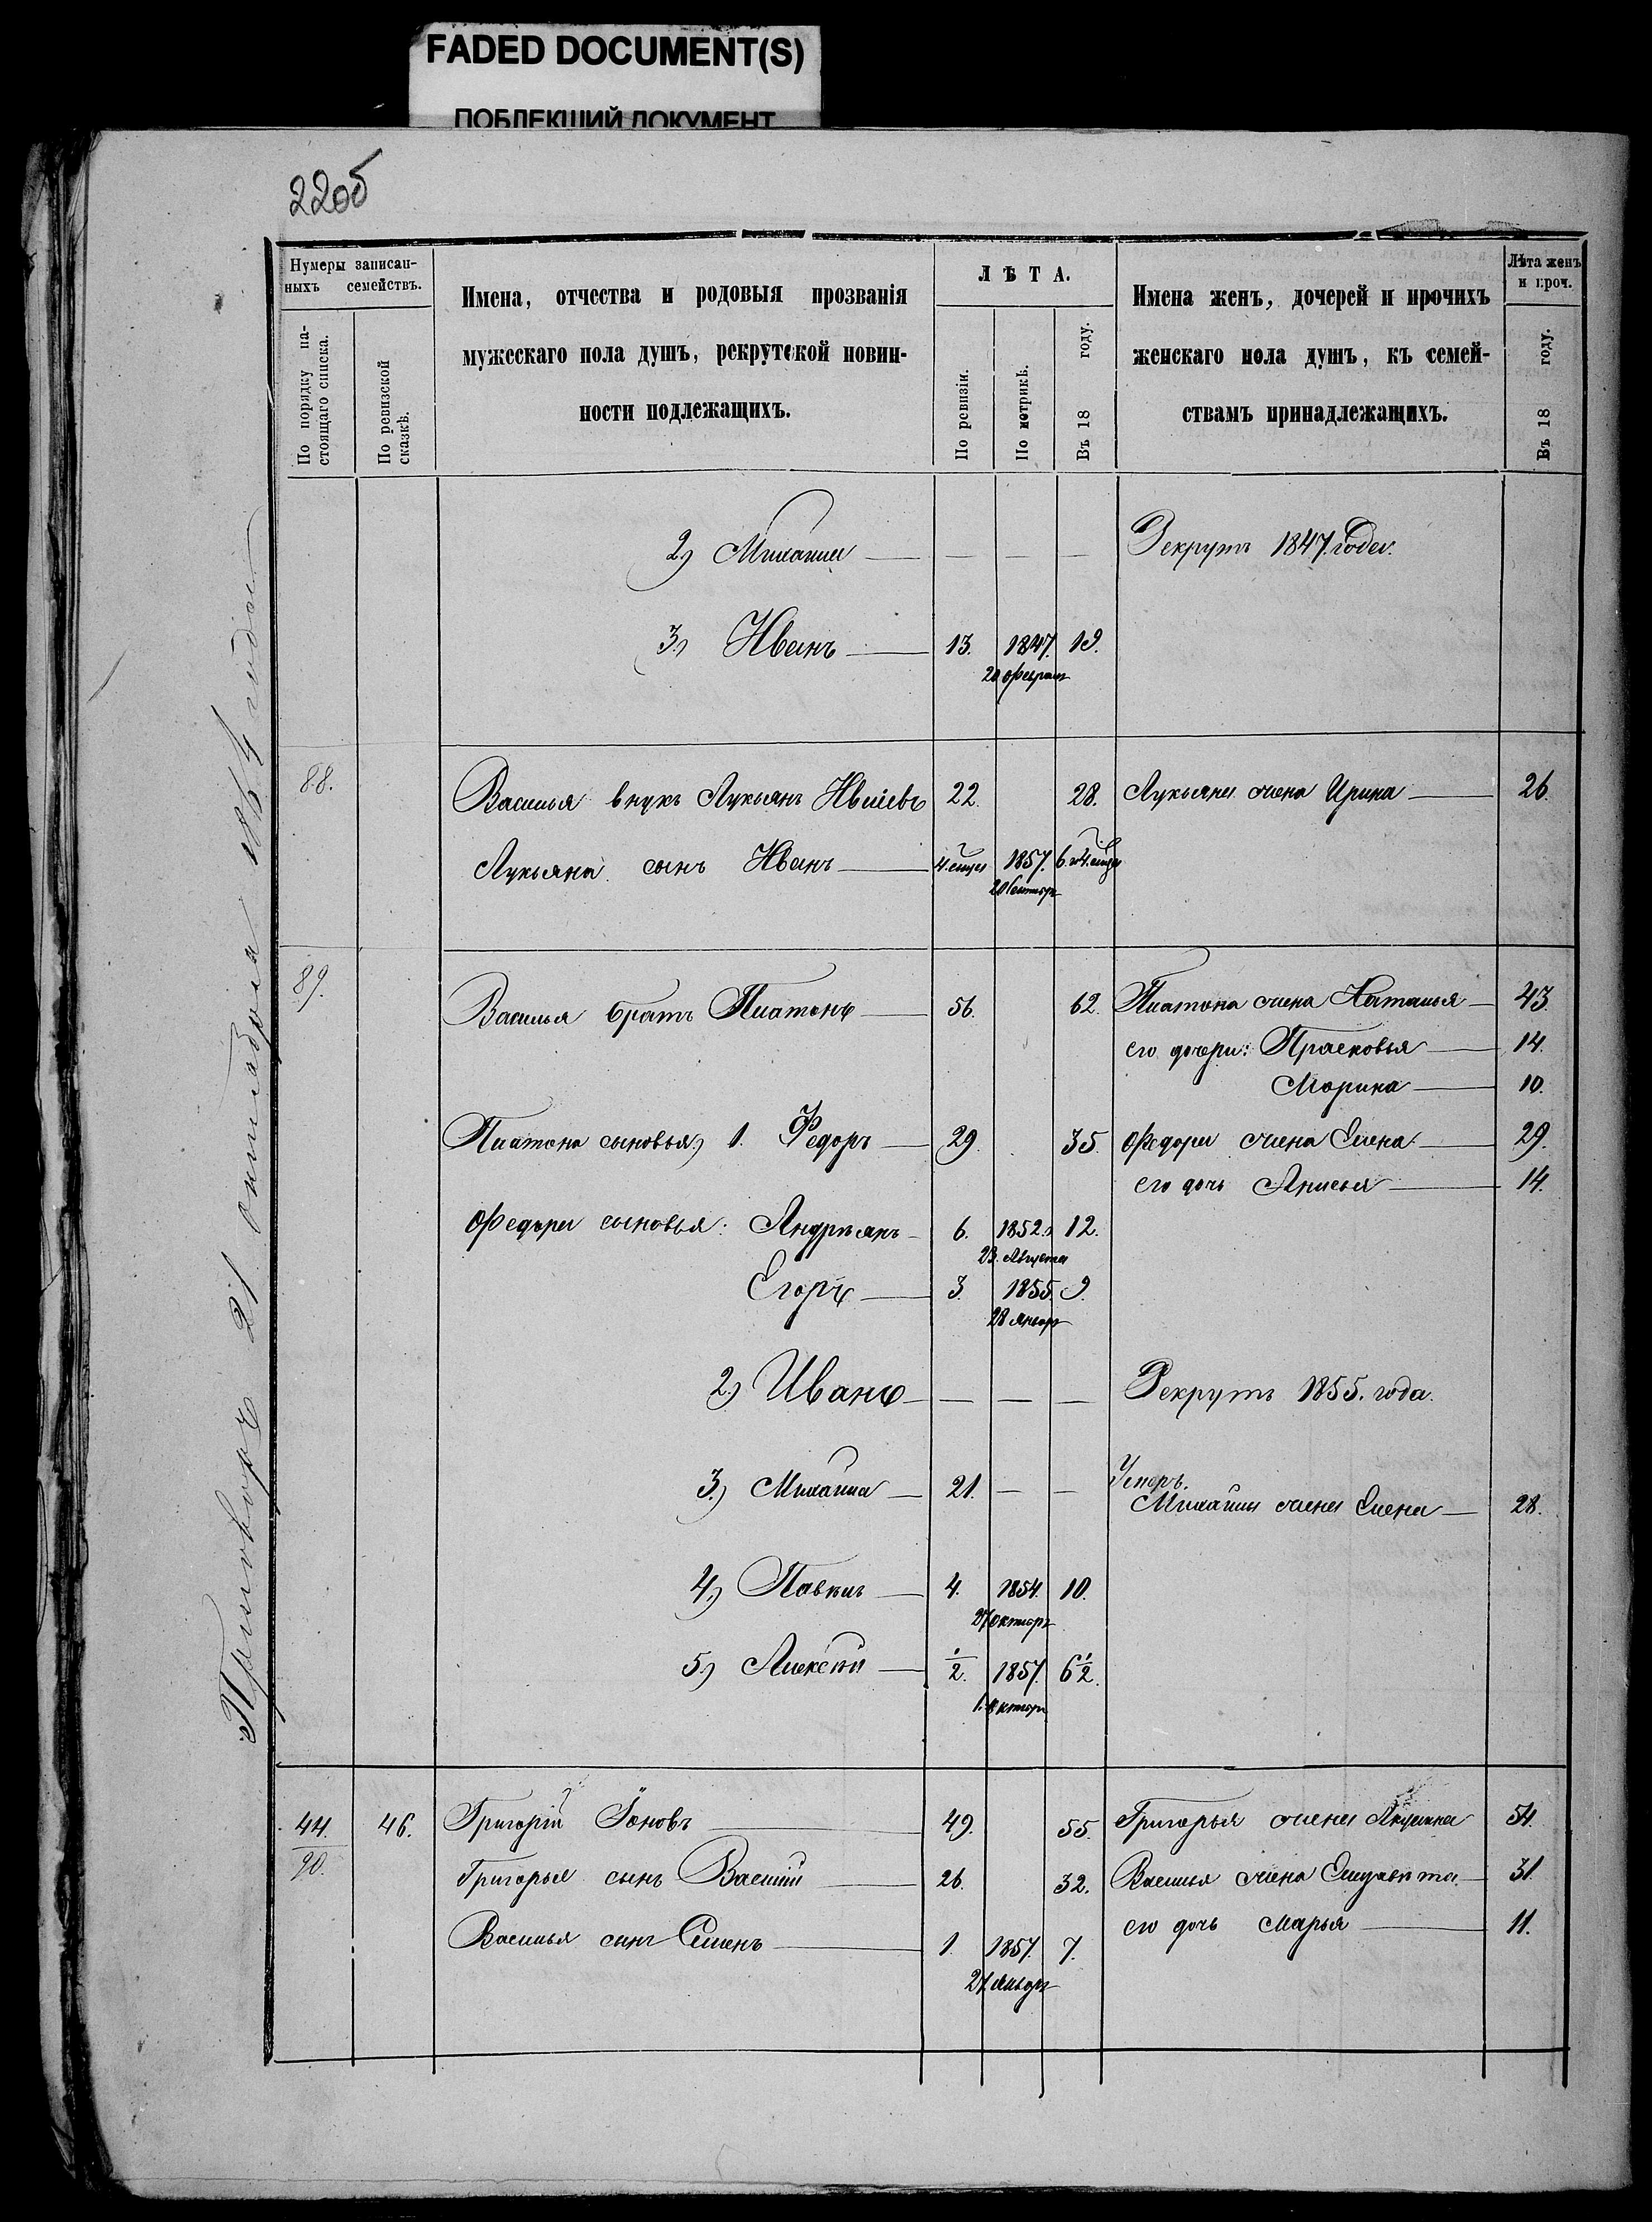 FADED DOCUMENT(S)
ПОБЛЕКШИЙ ДОКУМЕНТ
22об
Нумеры записан-
ныхъ семействъ.
По порядку на-
стоящаго списка.
По ревизской
сказкѣ.
Имена, отчества и родовыя прозванія
мужескаго пола душъ, рекрутской повин-
ности подлежащихъ.
ЛѢТА.
По ревизіи.
По метрикѣ.
Въ 18 году.
Имена женъ, дочерей и прочихъ
женскаго пола душъ, къ семей-
ствамъ принадлежащихъ.
Лѣта женъ
и проч.
Въ 18 году.
2) Михаила — — — — Рекрутъ 1847 года.
3) Иванъ — 13. 1847. 19.
20 Февраля
88. Василья внукъ Лукьянъ 22. 28. Лукьяна жена Ирина — 26.
Лукьяна сынъ Иванъ — 1857.
89. Василья братъ Платонъ — 56. 62. Платона жена Наталья — 43.
его дочери: Прасковья — 14.
Марина — 10.
Платона сыновья, 1. Федоръ — 29. 35. Федора жена Елена — 29.
его дочь Анисья — 14.
Федора сыновья: Андреянъ — 6. 1852. 12.
23. Августа
Егоръ — 3. 1855. 9.
28 Январ
2) Иванъ — — — — Рекрутъ 1855. года.
3.) Михаила — 21. — — Умеръ.
Михаила жена Елена — 28.
4,) Павелъ — 4. 1854. 10.
27 Октябр
5,) Алексѣй — ½. 1857. 6½.
1. Октябр
44. 46. Григорій Іоновъ — 49. 55. Григорья жена Акулина 54.
90. Григорья сынъ Василій — 26. 32. Василья жена Елизавѣта — 31.
его дочь Марья — 11.
Василья сынъ Семенъ — 1. 1857. 7.
27 Январ
21 октября 1864 года